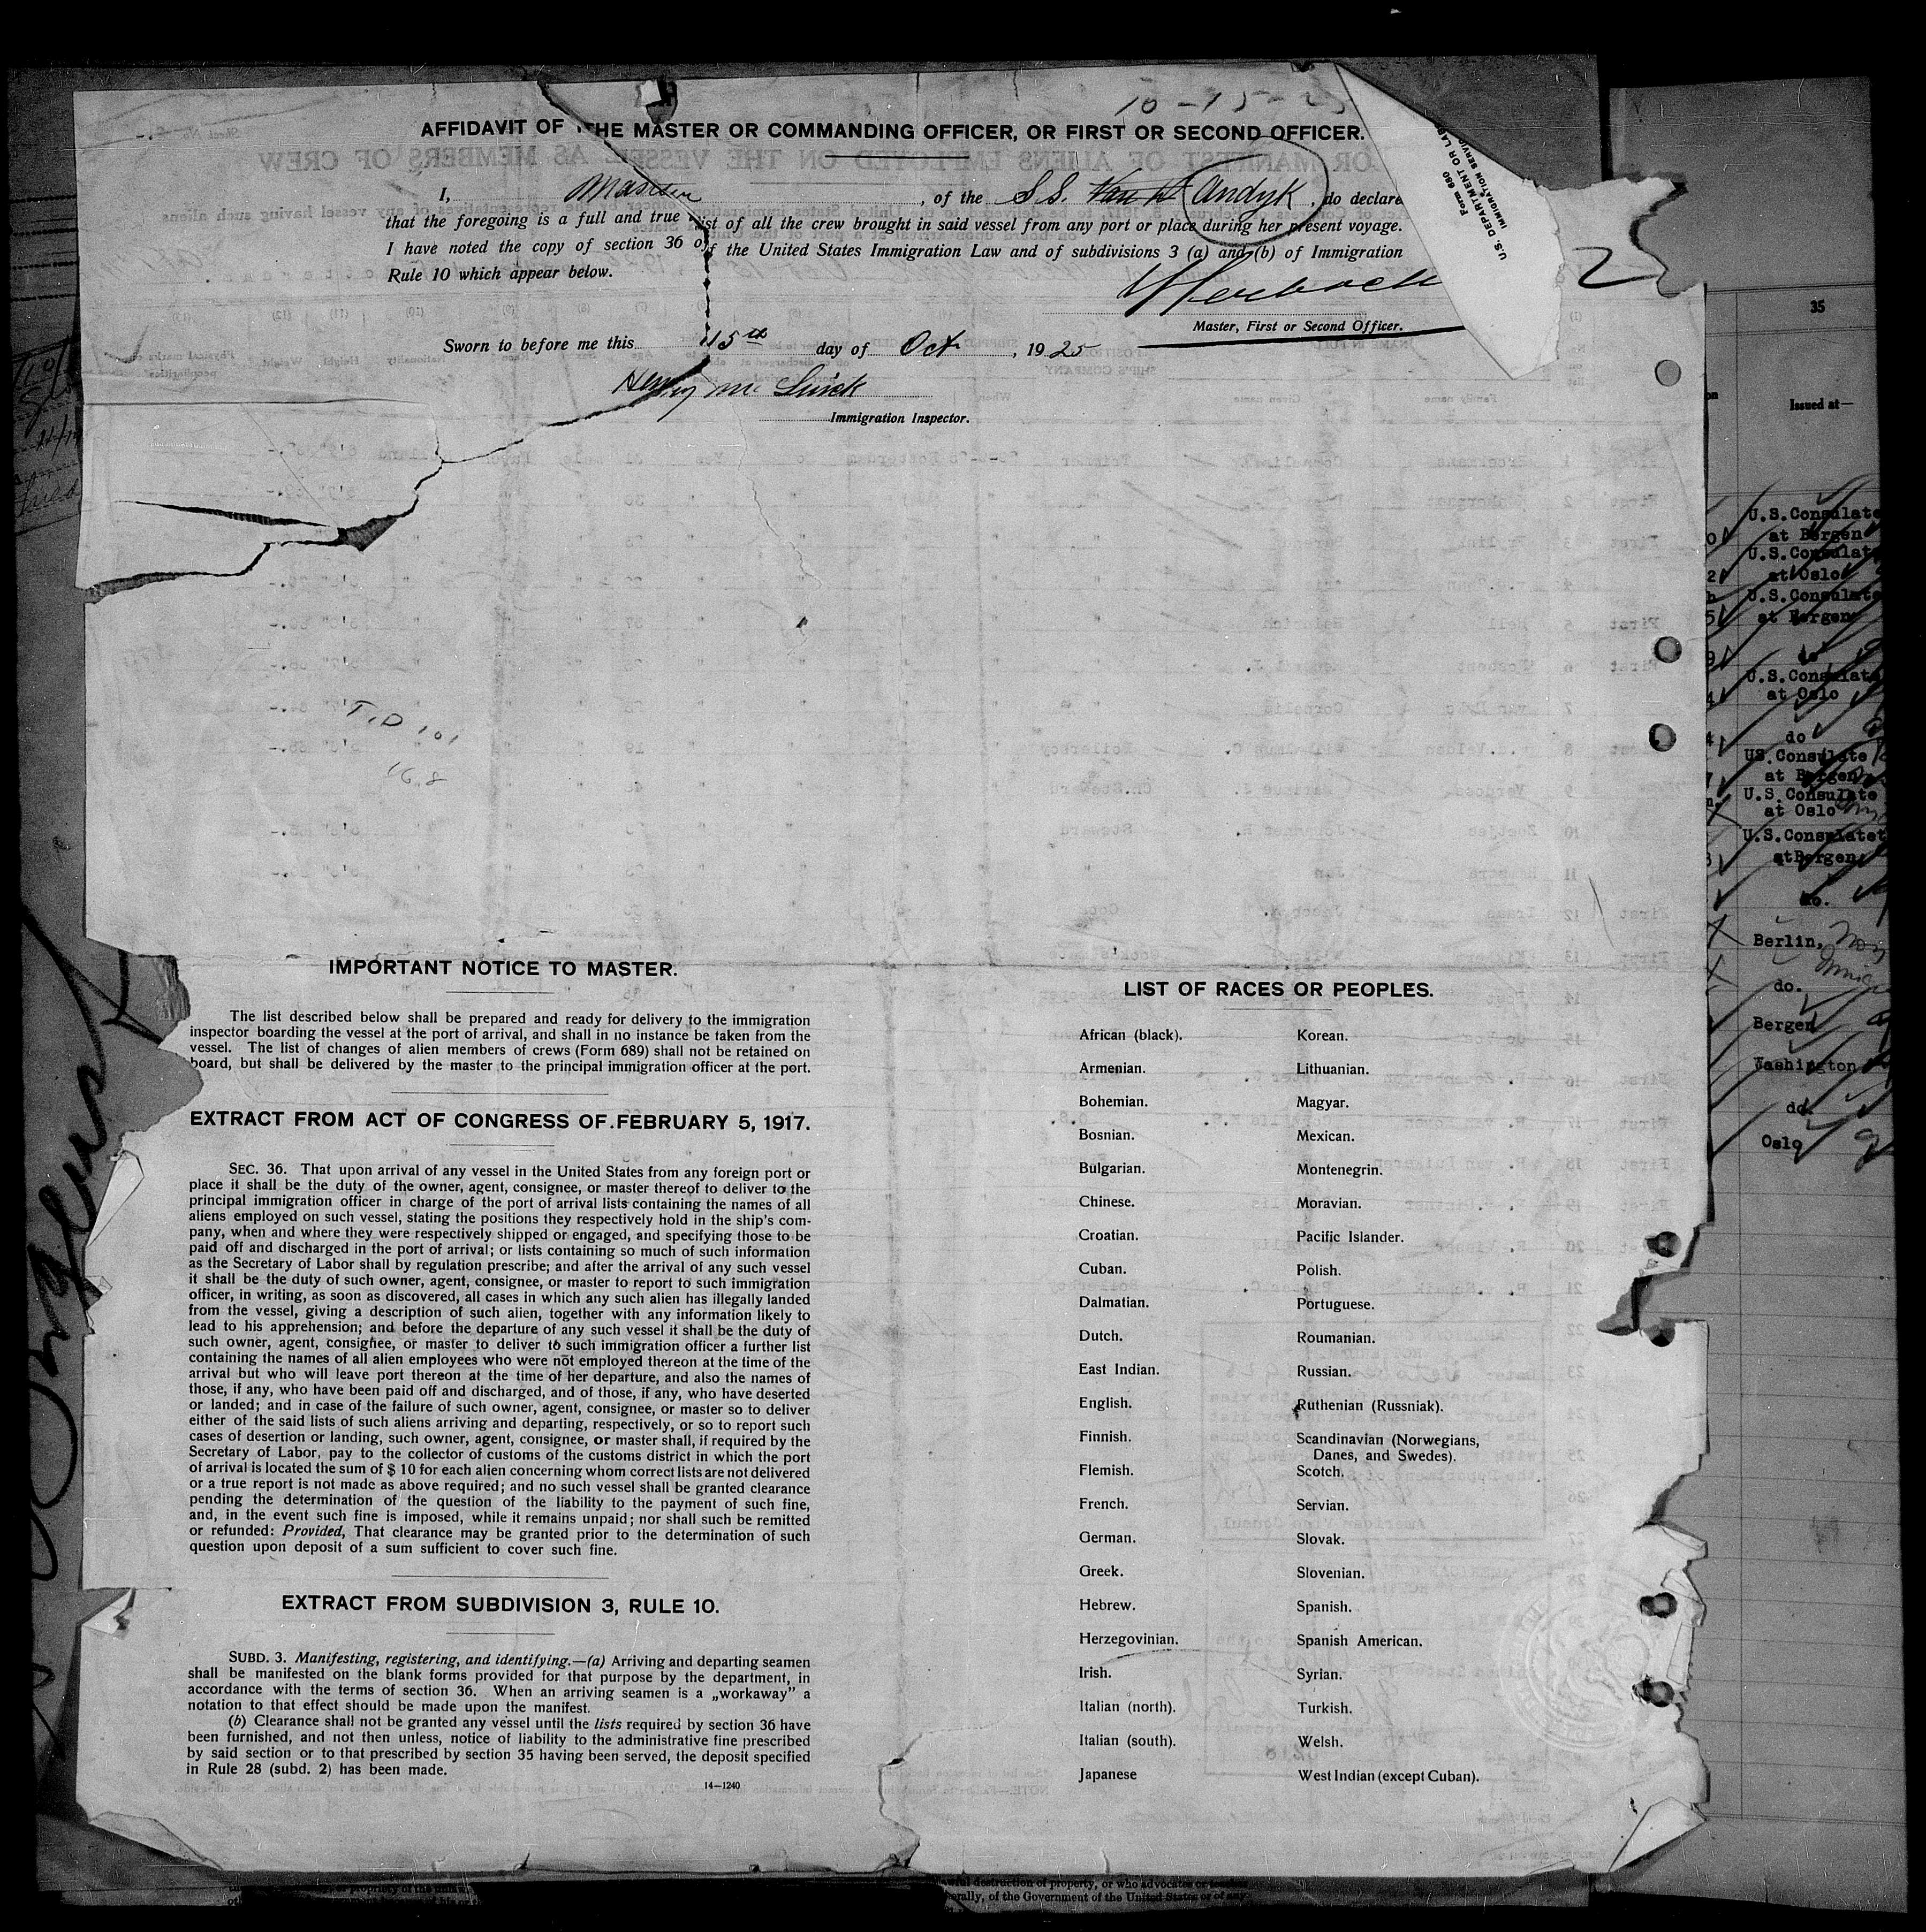 10-15-25
AFFIDAVIT OF THE MASTER OR COMMANDING OFFICER, OR FIRST OR SECOND OFFICER.
I, Master, of the S.S. Andyk, do declare
that the foregoing is a full and true list of all the crew brought in said vessel from any port or place during her present voyage.
I have noted the copy of section 36 of the United States Immigration Law and of subdivisions 3 (a) and (b) of Immigration
Rule 10 which appear below.
Master, First or Second Officer.
Sworn to before me this 15th day of Oct, 1925
Immigration Inspector.
Form 680
U.S. DEPARTMENT OF LABOR
IMMIGRATION SERVICE
2
T.D 101
168
IMPORTANT NOTICE TO MASTER.
The list described below shall be prepared and ready for delivery to the immigration
inspector boarding the vessel at the port of arrival, and shall in no instance be taken from the
vessel. The list of changes of alien members of crews (Form 689) shall not be retained on
board, but shall be delivered by the master to the principal immigration officer at the port.
EXTRACT FROM ACT OF CONGRESS OF FEBRUARY 5, 1917.
SEC. 36. That upon arrival of any vessel in the United States from any foreign port or
place it shall be the duty of the owner, agent, consignee, or master thereof to deliver to the
principal immigration officer in charge of the port of arrival lists containing the names of all
aliens employed on such vessel, stating the positions they respectively hold in the ship's com-
pany, when and where they were respectively shipped or engaged, and specifying those to be
paid off and discharged in the port of arrival; or lists containing so much of such information
as the Secretary of Labor shall by regulation prescribe; and after the arrival of any such vessel
it shall be the duty of such owner, agent, consignee, or master to report to such immigration
officer, in writing, as soon as discovered, all cases in which any such alien has illegally landed
from the vessel, giving a description of such alien, together with any information likely to
lead to his apprehension; and before the departure of any such vessel it shall be the duty of
such owner, agent, consignee, or master to deliver to such immigration officer a further list
containing the names of all alien employees who were not employed thereon at the time of the
arrival but who will leave port thereon at the time of her departure, and also the names of
those, if any, who have been paid off and discharged, and of those, if any, who have deserted
or landed; and in case of the failure of such owner, agent, consignee, or master so to deliver
either of the said lists of such aliens arriving and departing, respectively, or so to report such
cases of desertion or landing, such owner, agent, consignee, or master shall, if required by the
Secretary of Labor, pay to the collector of customs of the customs district in which the port
of arrival is located the sum of $ 10 for each alien concerning whom correct lists are not delivered
or a true report is not made as above required; and no such vessel shall be granted clearance
pending the determination of the question of the liability to the payment of such fine,
and, in the event such fine is imposed, while it remains unpaid; nor shall such be remitted
or refunded: Provided, That clearance may be granted prior to the determination of such
question upon deposit of a sum sufficient to cover such fine.
EXTRACT FROM SUBDIVISION 3, RULE 10.
SUBD. 3. Manifesting, registering, and identifying.—(a) Arriving and departing seamen
shall be manifested on the blank forms provided for that purpose by the department, in
accordance with the terms of section 36. When an arriving seamen is a „workaway" a
notation to that effect should be made upon the manifest.
(b) Clearance shall not be granted any vessel until the lists required by section 36 have
been furnished, and not then unless, notice of liability to the administrative fine prescribed
by said section or to that prescribed by section 35 having been served, the deposit specified
in Rule 28 (subd. 2) has been made.
14—1240
LIST OF RACES OR PEOPLES.
African (black).
Armenian.
Bohemian.
Bosnian.
Bulgarian.
Chinese.
Croatian.
Cuban.
Dalmatian.
Dutch.
East Indian.
English.
Finnish.
Flemish.
French.
German.
Greek.
Hebrew.
Herzegovinian.
Irish.
Italian (north).
Italian (south).
Japanese
Korean.
Lithuanian.
Magyar.
Mexican.
Montenegrin.
Moravian.
Pacific Islander.
Polish.
Portuguese.
Roumanian.
Russian.
Ruthenian (Russniak).
Scandinavian (Norwegians,
Danes, and Swedes).
Scotch.
Servian.
Slovak.
Slovenian.
Spanish.
Spanish American.
Syrian.
Turkish.
Welsh.
West Indian (except Cuban).
35
Issued at—
U.S.Consulate
at Bergen
U.S.Consulat
at Oslo
U.S.Consulate
at Bergen
do
U.S.Consulat
at Oslo
do
US.Consulate
at Bergen
U.S.Consulate
at Oslo
U.S.Consulatet
atBergen
do.
Berlin,
do.
Bergen
Washington
do.
Oslo
destruction of property, or who advocates or
of the Government of the United States or of any